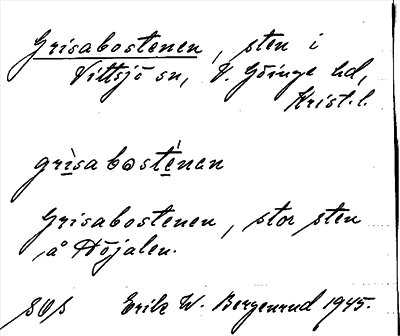 Grisabostenen, sten i
Vittsjö sn, V. Göinge hd,
Krist. l.
grìsabosténen
Grisabostenen, stor sten
å Höjalen.
Erik W. Bergenrud 1945.